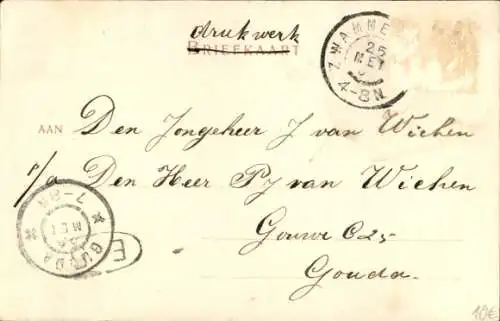 drukwerk
BRIEFKAART
ZWAMME
25
MEI
4-8N
AAN Den Jongeheer J van Wichen
p/a Den Heer PJ van Wichen
Gouwe C25
Gouda.
GOUDA
7-8
E
10€